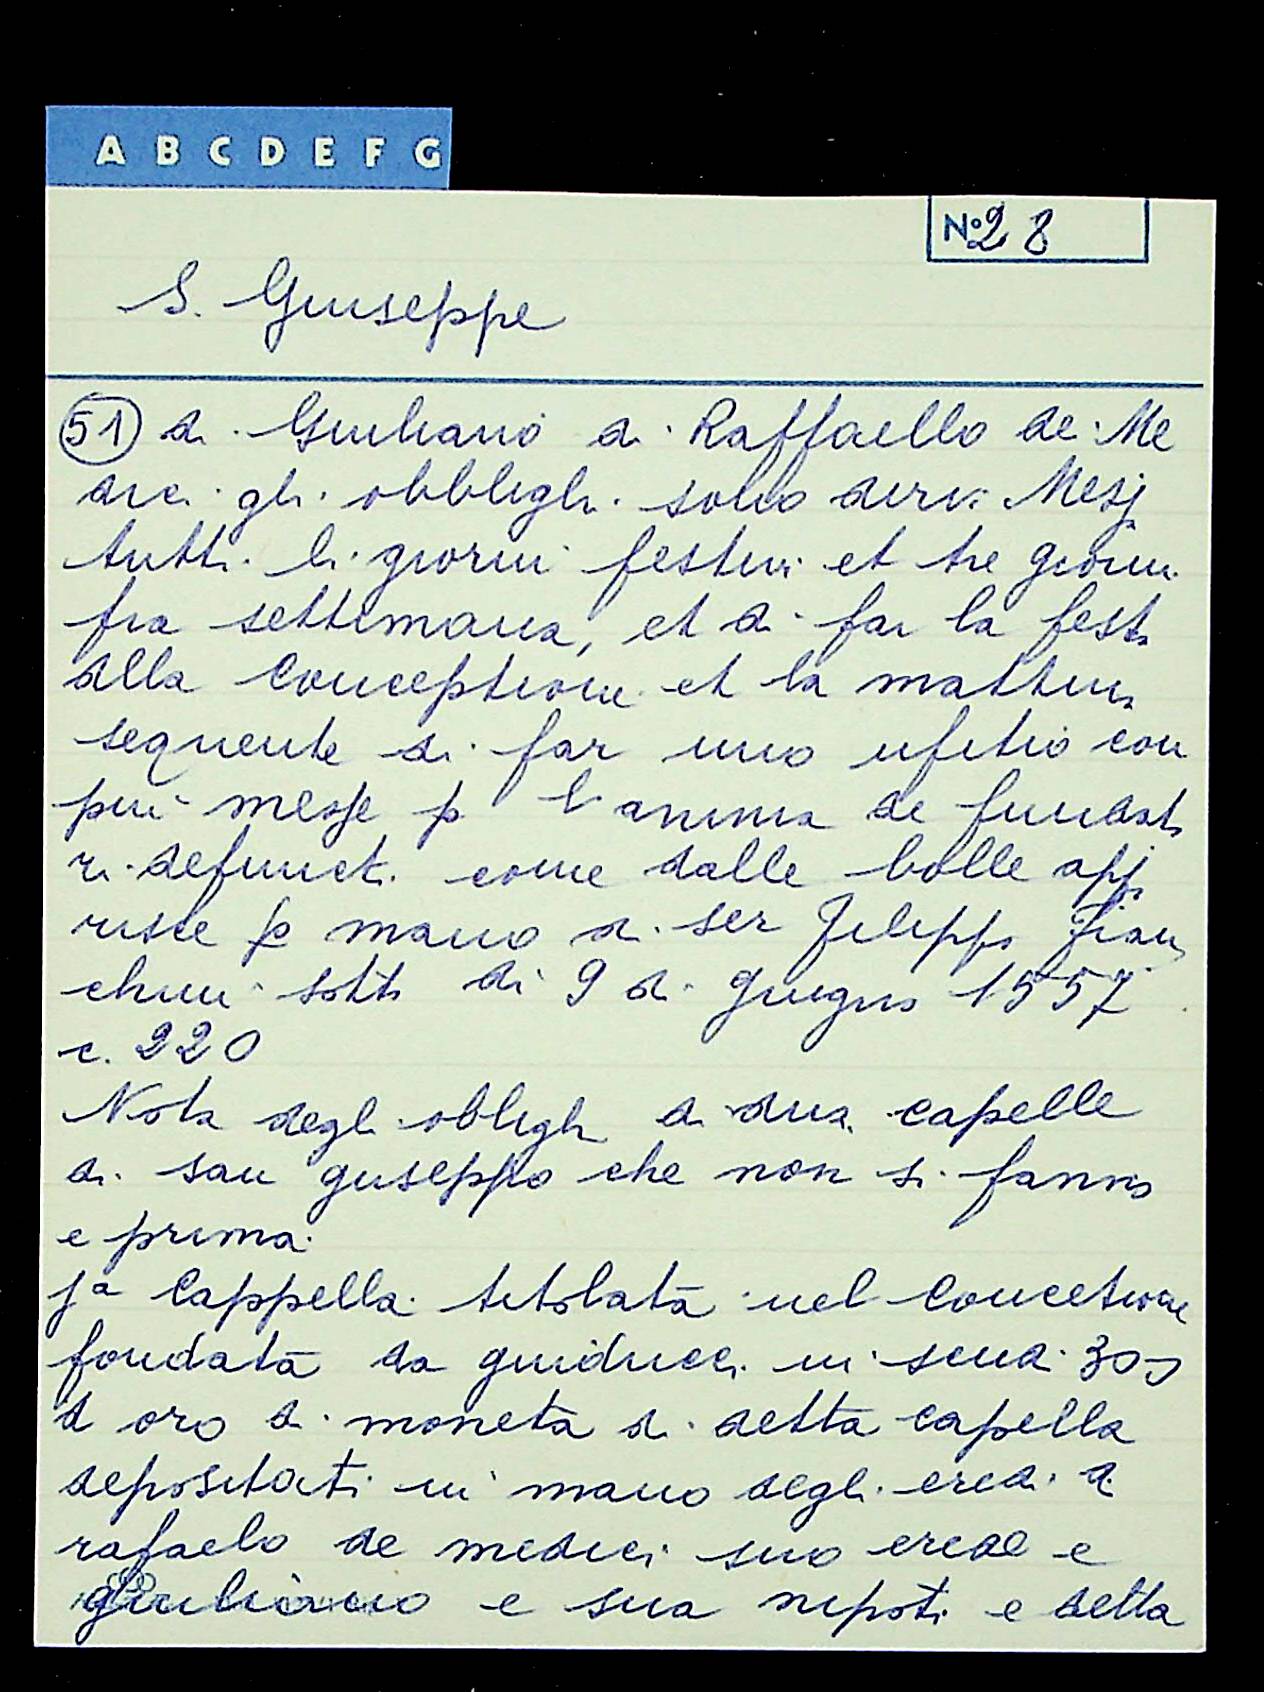 A B C D E F G
Nº 28
S. Giuseppe
51) di Giuliano di Raffaello de Me
dici gli obblighi sono dirvi Messa
tutti li giorni festivi et tre giorni
fra settimana, et di far la festa
della Conceptione et la mattina
sequente di far uno ufitio con
più messe p l'anima de fundato
ri defuncti come dalle bolle app
riste p mano di ser Filippo Fran
chini sotto di 9 di giugno 1557
c. 220
Nota degli oblighi di dua capelle
di san giuseppo che non si fanno
e prima
jª Cappella titolata nel Concetione
fondata da guiducci in scudi 300
d oro di moneta di detta capella
depositati in mano degli eredi di
rafaelo de medici suo erede e
giuliano e sua nipoti e detta